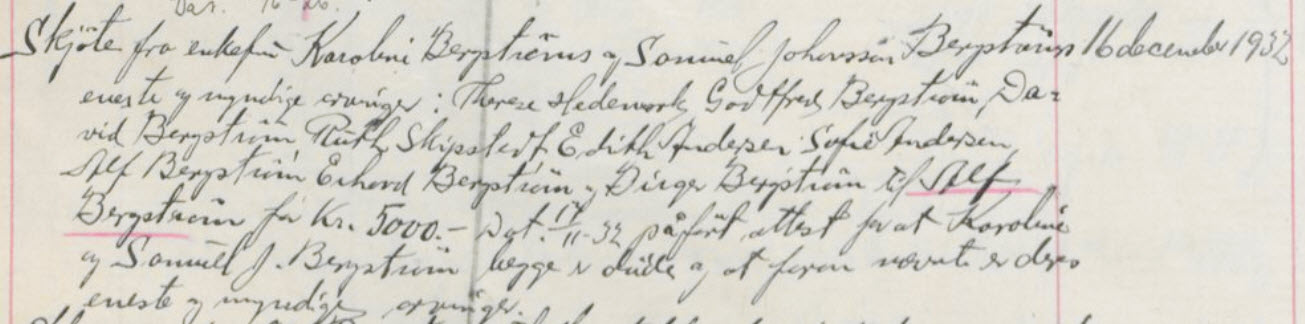 Dat. 16-
Skjöte fra enkefru Karoline Bergströms og Samuel Johansson Bergströms 16 december 1932
eneste og myndige arvinger: Therese Hedework, Godtfred Bergström, Da-
vid Bergström Ruth Skipstedt Edith Andersen Sofie Andersen,
Alf Bergström Erhard Bergström og Birger Bergström til Alf
Bergström for Kr. 5000.- Dat. 17/11-32 påfört attest for at Karoline
og Samuel J. Bergström begge er døde og at foran nevnte er deres
eneste og myndige arvinger.